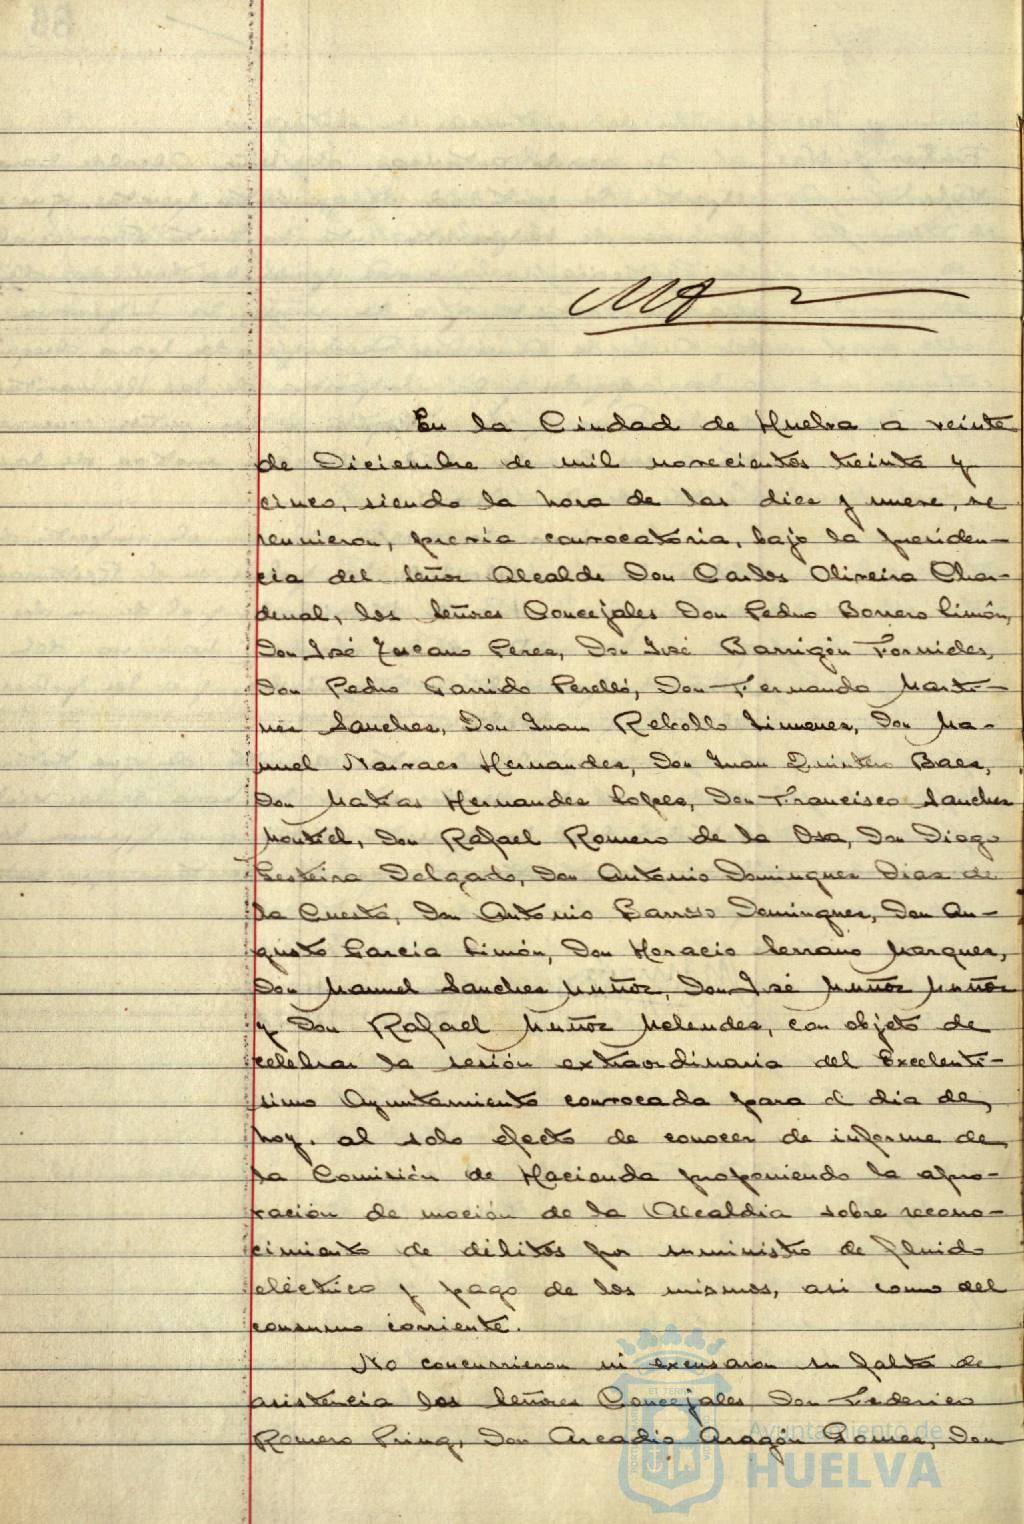 En la Ciudad de Huelva a veinte
de Diciembre de mil novecientos treinta y
cinco, siendo la hora de las diez y nueve, se
reunieron, previa convocatoria, bajo la presiden-
cia del Señor Alcalde Don Carlos Oliveira Char-
denal, los Señores Concejales Don Pedro Borrero Limón,
Don José Lozano Perez, Don José Barrigón Fornieles,
Don Pedro Garrido Perelló, Don Fernando Marti-
nez Sanchez, Don Juan Rebollo Jimenez, Don Ma-
nuel Narvaez Hernandez, Don Juan Quintero Baez,
Don Matias Hernandez Lopez, Don Francisco Sanchez
Montiel, Don Rafael Romero de la Osa, Don Diego
Delgado, Don Antonio Dominguez Diaz de
la Cuesta, Don Antonio Barroso Dominguez, Don Au-
gusto Garcia Limón, Don Horacio Serrano Marquez,
Don Manuel Sanchez Muñoz, Don José Muñoz Muñoz
y Don Rafael Muñoz Melendez, con objeto de
celebrar la sesión extraordinaria del Excelentí-
simo Ayuntamiento convocada para el dia de
hoy, al solo efecto de conocer de informe de
la Comisión de Hacienda proponiendo la apro-
bación de moción de la Alcaldia sobre recono-
cimiento de débitos por suministro de fluido
eléctrico y pago de los mismos, asi como del
consumo corriente.
No concurrieron ni excusaron su falta de
asistencia los Señores Concejales Don Federico
Romero Prinq, Don Arcadio Aragón Gomez, Don
Ayuntamiento de
HUELVA